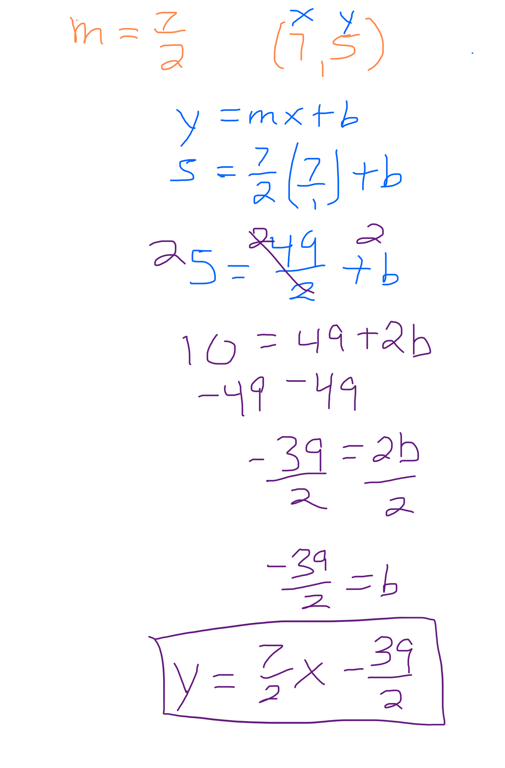 m = 7/2 (7, 5)
x y
y = mx + b
5 = 7/2 (7/1) + b
2 5 = 2 49/2 + 2 b
10 = 49 + 2b
-49 -49
-39/2 = 2b/2
-39/2 = b
y = 7/2 x - 39/2